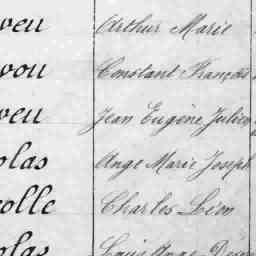 veu Arthur Marie
vou Constant François
veu Jean Eugène Julien
olas Ange Marie Joseph
olle Charles Léon
olas Louis Ange